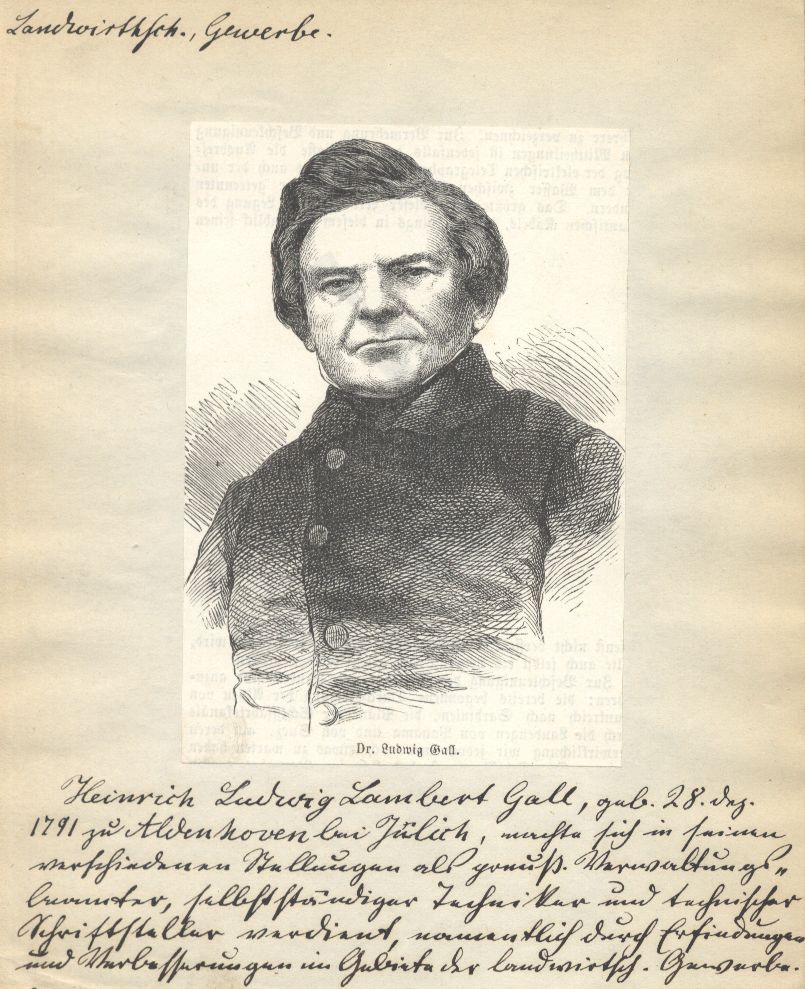 Landwirthsch., Gewerbe.
Dr. Ludwig Gall.
Heinrich Ludwig Lambert Gall, geb. 28. Dez.
1791 zu Aldenhoven bei Jülich, machte sich in seinen
verschiedenen Stellungen als preuß. Verwaltungs-
beamter, selbstständiger Techniker und technischer
Schriftsteller verdient, namentlich durch Erfindungen
und Verbesserungen im Gebiete der landwirtsch. Gewerbe.